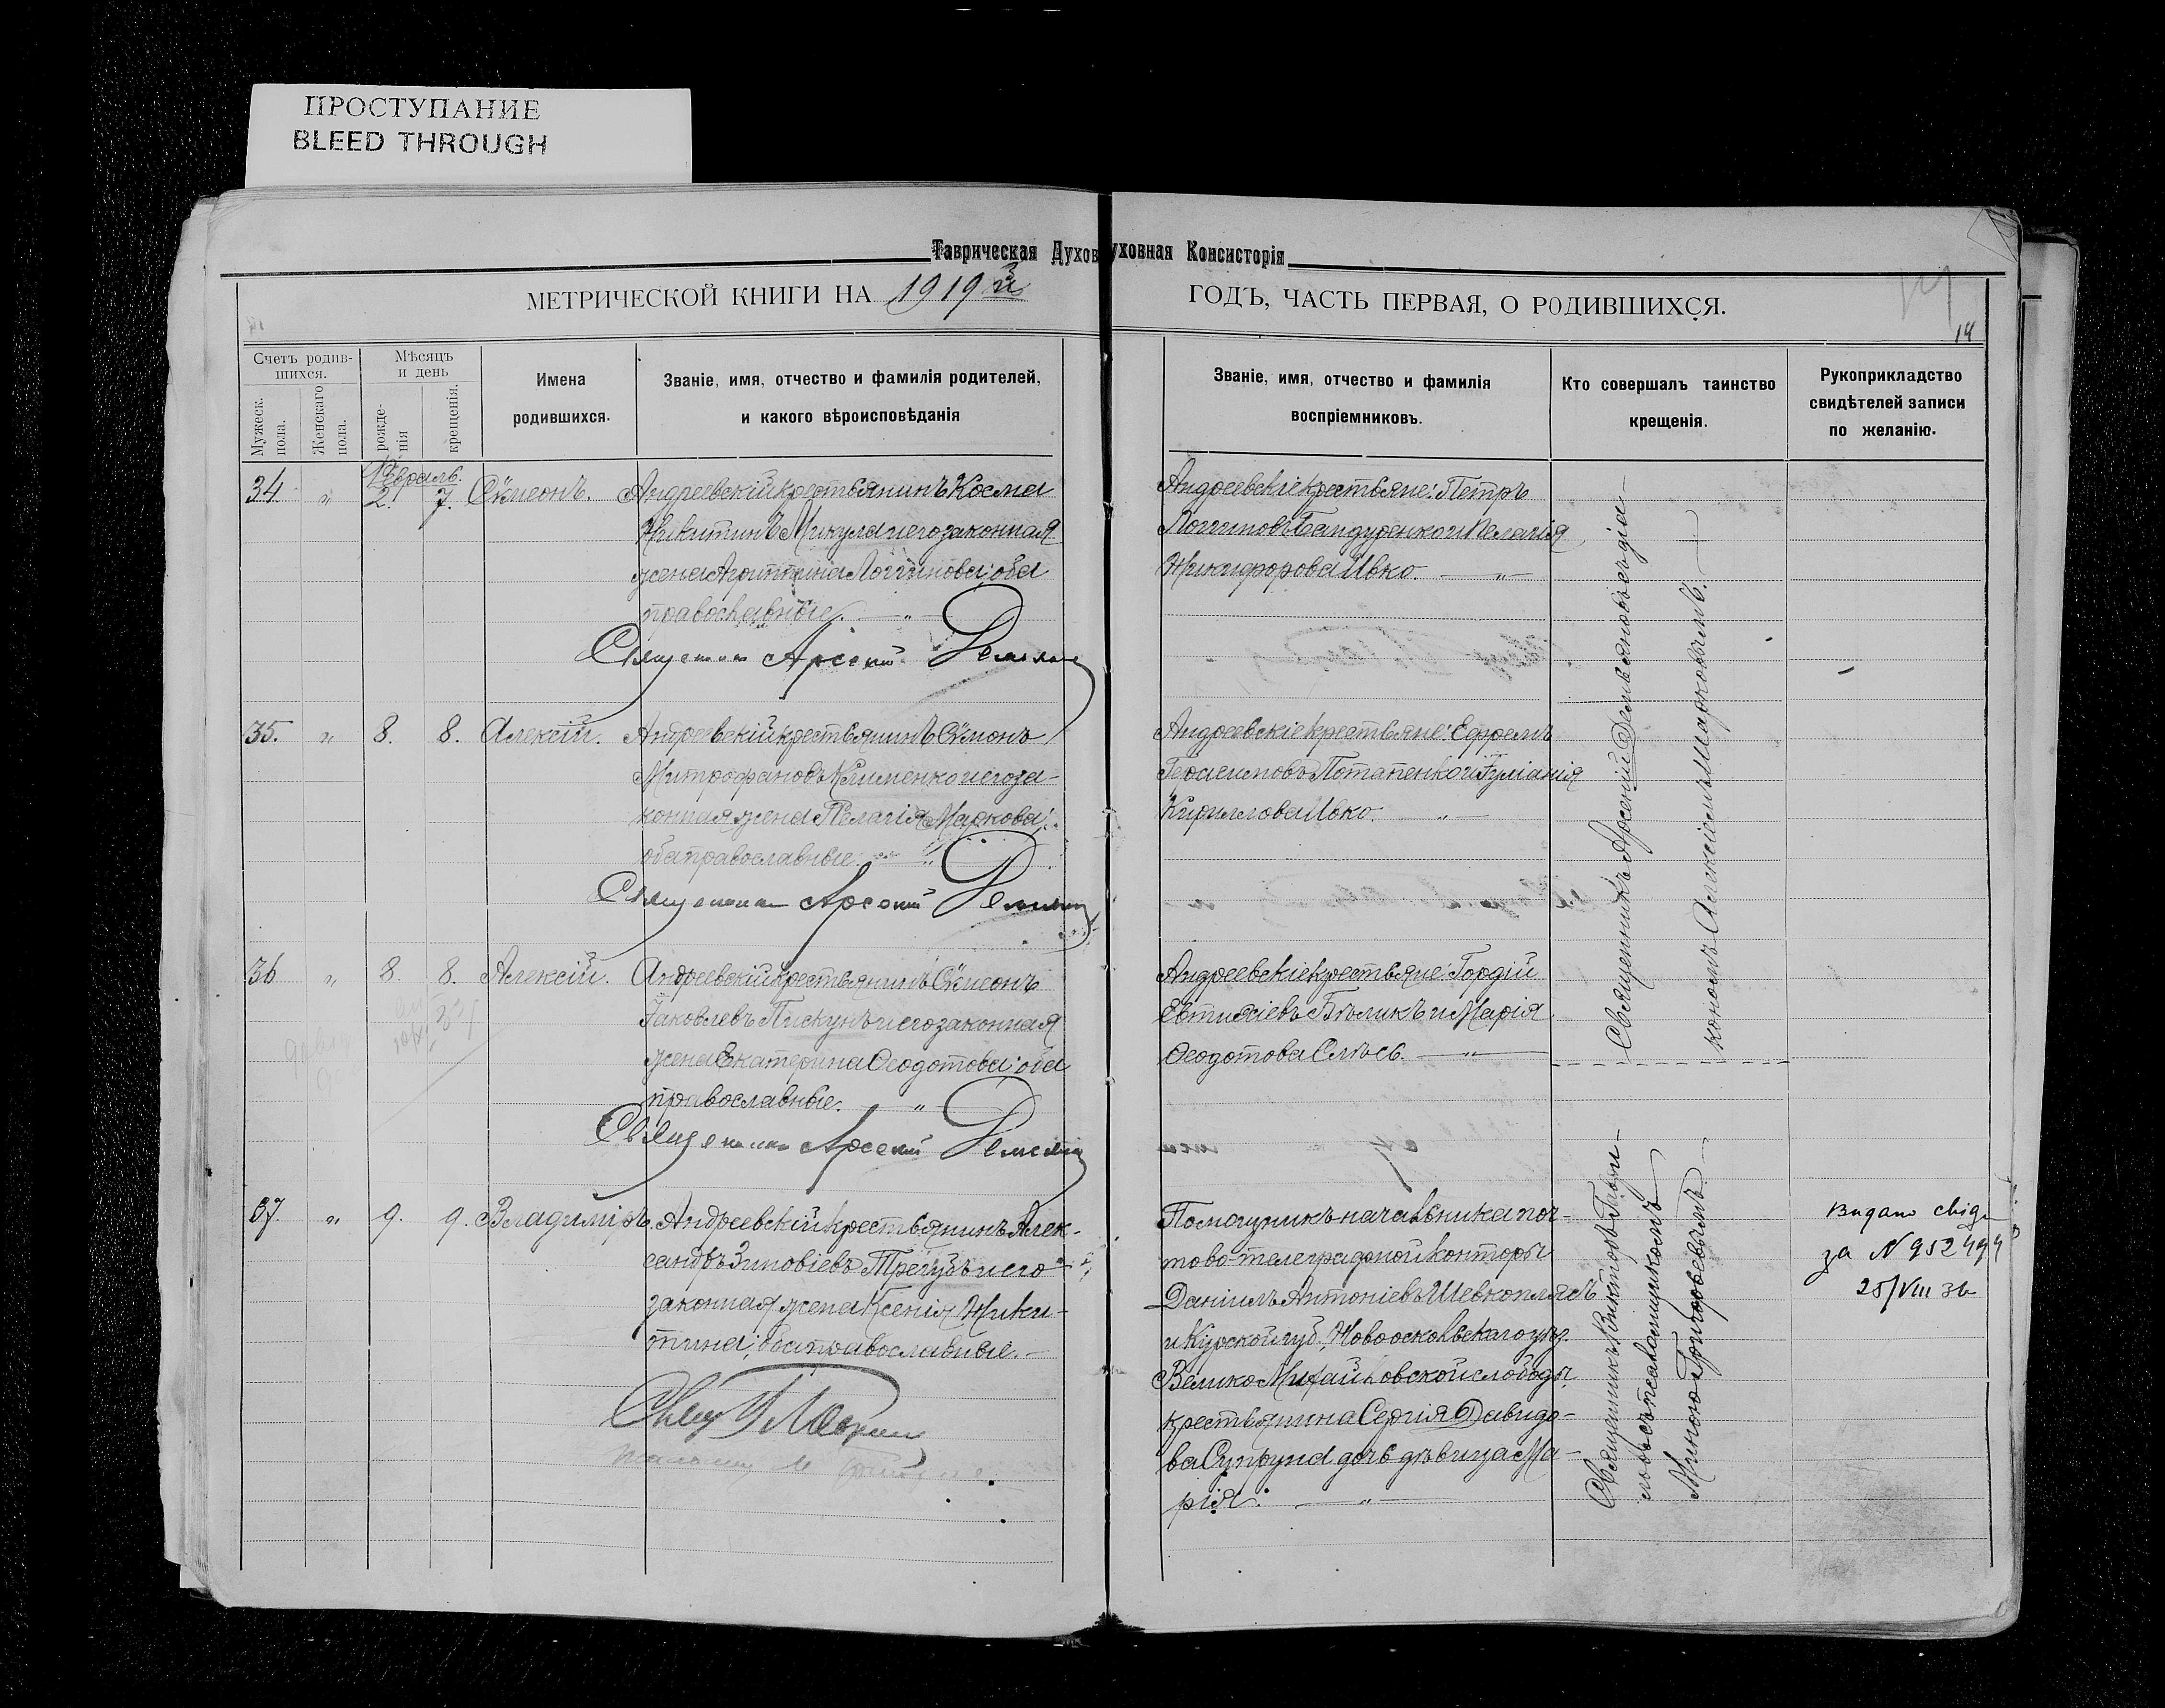 ПРОСТУПАНИЕ
BLEED THROUGH
Таврическая Духов уховная Консисторія
МЕТРИЧЕСКОЙ КНИГИ НА 1919й ГОДЪ, ЧАСТЬ ПЕРВАЯ, О РОДИВШИХСЯ.
14
Счетъ родив-
шихся.
Мужеск.
пола.
Женскаго
пола.
Мѣсяцъ
и день
рожде-
нія
крещенія.
Имена
родившихся.
Званіе, имя, отчество и фамилія родителей,
и какого вѣроисповѣданія
Званіе, имя, отчество и фамилія
воспріемниковъ.
Кто совершалъ таинство
крещенія.
Рукоприкладство
свидѣтелей записи
по желанію.
Февраль.
34. " 2. 7. Сѵмеонъ. Андреевскій крестьянинъ Косма
Никитинъ Микула и его законная
жена Агриппина Логгинова; оба
православные. "
Священник Арсений
Андреевскіе крестьяне: Петръ
Логгиновъ Бандуренко и Пелагія
Никифорова Ивко. "
35. " 8. 8. Алексій. Андреевскій крестьянинъ Сѵмеонъ
Митрофановъ Клименко и его за-
конная жена Пелагія Маркова;
оба православные. "
Священник Арсений
Андреевскіе крестьяне: Ефремъ
Герасимовъ Потапенко и Іуліанія
Кириллова Ивко. "
36 " 8. 8. Алексій. Андреевскій крестьянинъ Сѵмеонъ
Іаковлевъ Пискунъ и его законная
жена Екатерина Ѳеодотова; оба
православные. "
Священник Арсений
Андреевскіе крестьяне: Гордій
Евтихіевъ Бѣликъ и Марія
Ѳеодотова Слѣсь. "
Священникъ Арсеній Демьяновъ съ діа-
кономъ Алексіемъ Марковымъ.
37. " 9. 9. Владиміръ. Андреевскій крестьянинъ Алек-
сандръ Зиновіевъ Трегубъ и его
законная жена Ксенія Ники-
тина; оба православные.
Помощникъ начальника поч-
тово-телеграфной конторы
Даніилъ Антоніевъ Шевкоплясъ
и Курской губ., Новооскольскаго уѣз.
Велико Михайловской слободы
крестьянина Сергія Давидо-
ва Супруна дочь дѣвица Ма-
рія. "
Священникъ Викторъ
съ псаломщикомъ
Миною Григоровевымъ.
за N 952494
25/VIII 36